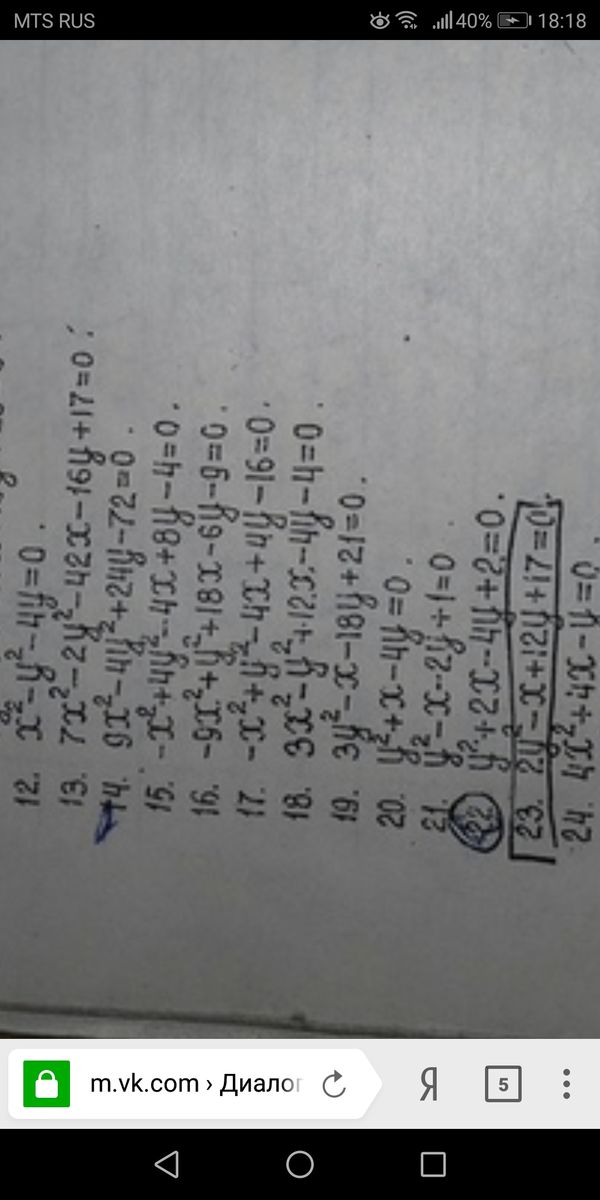 MTS RUS 40% 18:18
12. x²-y²-4y=0.
13. 7x²-2y²-42x-16y+17=0.
14. 9x²-4y²+24y-72=0.
15. -x²+4y²-4x+8y-4=0.
16. -9x²+y²+18x-6y-9=0.
17. -x²+y²-4x+4y-16=0.
18. 3x²-y²+12x-4y-4=0.
19. 3y²-x-18y+21=0.
20. y²+x-4y=0.
21. y²-x-2y+1=0.
22. y²+2x-4y+2=0.
23. 2y²-x+12y+17=0.
24. 4x²+4x-y=0.
m.vk.com › Диалог
Я 5